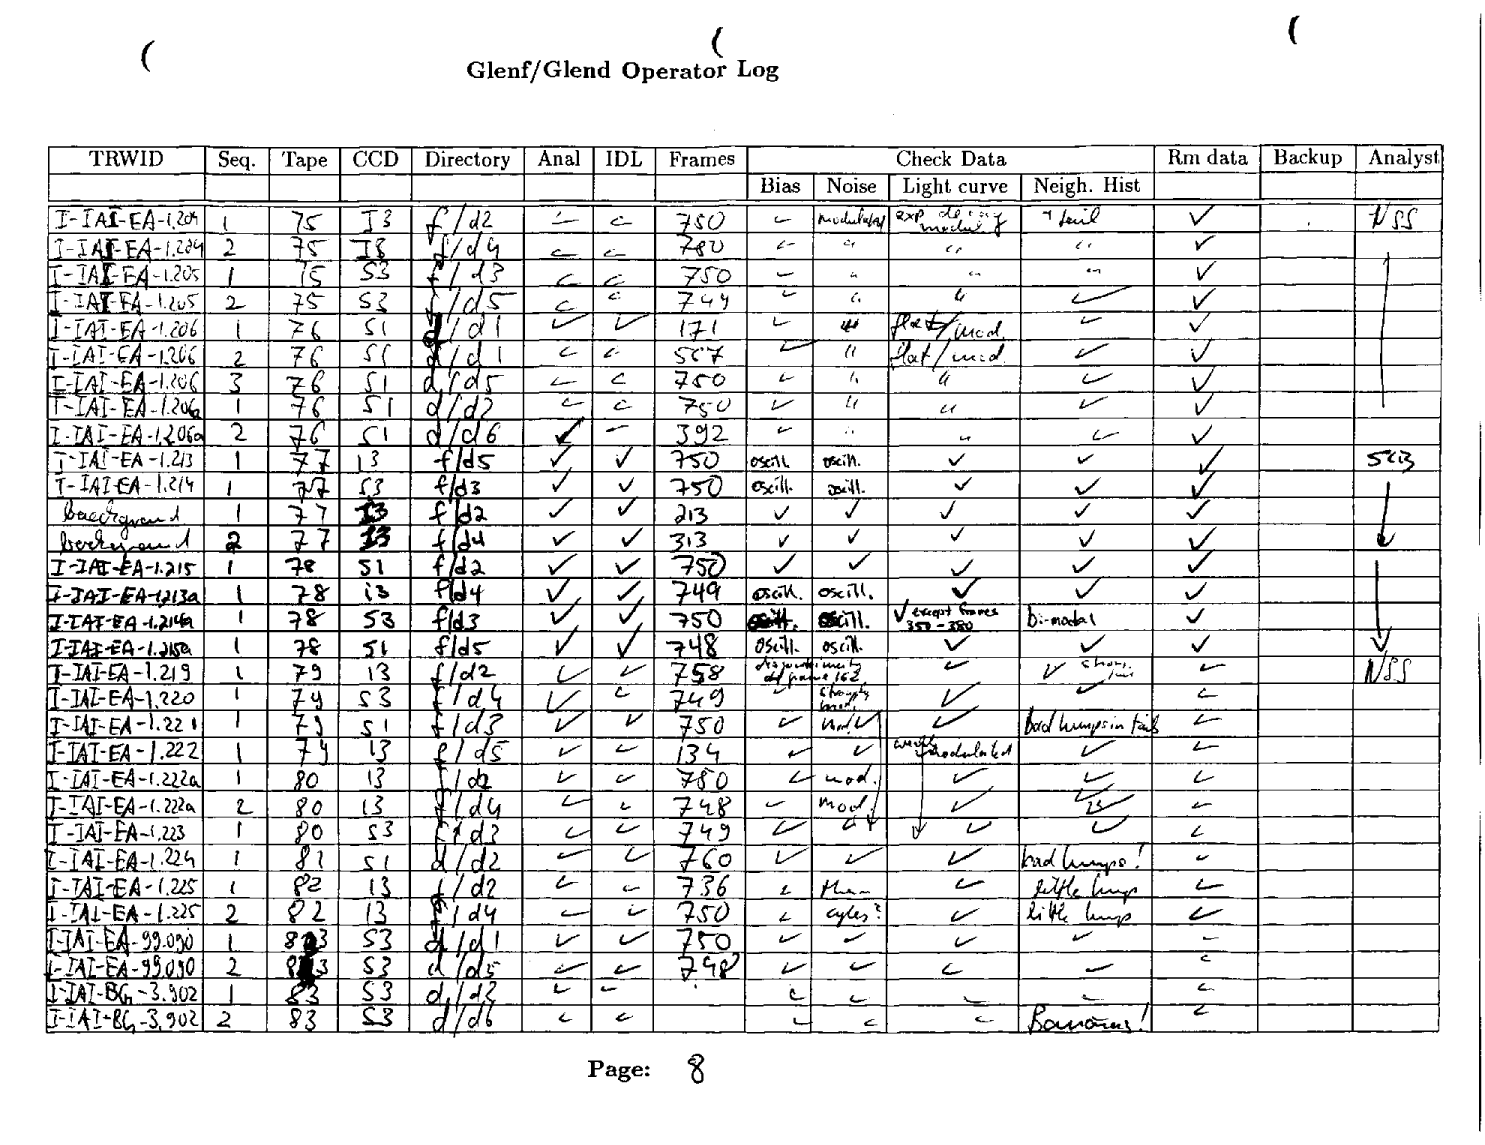 Glenf/Glend Operator Log
TRWID Seq. Tape CCD Directory Anal IDL Frames Check Data Rm data Backup Analyst
Bias Noise Light curve Neigh. Hist
I-IAI-EA-1.204 1 75 I3 f/d2 ✓ ✓ 750 ✓ modulated exp. decay tail ✓ NSS
I-IAI-EA-1.204 2 75 I3 f/d4 ✓ ✓ 780 ✓ " " " ✓
I-IAI-EA-1.205 1 75 S3 f/d3 ✓ ✓ 750 ✓ " " " ✓
I-IAI-EA-1.205 2 75 S3 f/d5 ✓ ✓ 749 ✓ " " ✓ ✓
I-IAI-EA-1.206 1 76 S1 d/d1 ✓ ✓ 171 ✓ " flat/mod ✓ ✓
I-IAI-EA-1.206 2 76 S1 d/d1 ✓ ✓ ✓ " flat/mod. ✓ ✓
I-IAI-EA-1.206 3 76 S1 d/d5 ✓ ✓ 750 ✓ " " ✓ ✓
I-IAI-EA-1.206a 1 76 S1 d/d2 ✓ ✓ 750 ✓ " " ✓ ✓
I-IAI-EA-1.206a 2 76 S1 d/d6 ✓ ✓ 392 ✓ " " ✓ ✓
I-IAI-EA-1.213 1 77 I3 f/d5 ✓ ✓ 750 oscill. oscill. ✓ ✓ ✓
I-IAI-EA-1.214 1 77 S3 f/d3 ✓ ✓ 750 oscill. oscill. ✓ ✓ ✓
background 1 77 I3 f/d2 ✓ ✓ 213 ✓ ✓ ✓ ✓ ✓
background 2 77 I3 f/d4 ✓ ✓ 313 ✓ ✓ ✓ ✓ ✓
I-IAI-EA-1.215 1 78 S1 f/d2 ✓ ✓ 750 ✓ ✓ ✓ ✓ ✓
I-IAI-EA-1.213a 1 78 i3 f/d4 ✓ ✓ 749 oscill. oscill. ✓ ✓ ✓
I-IAI-EA-1.214a 1 78 S3 f/d3 ✓ ✓ 750 oscill. oscill. ✓ except frames 350-380 bi-modal ✓
I-IAI-EA-1.215a 1 78 S1 f/d5 ✓ ✓ 748 oscill. oscill. ✓ ✓ ✓
I-IAI-EA-1.219 1 79 I3 f/d2 ✓ ✓ 758 frame 162 ✓ ✓ ✓ NSS
I-IAI-EA-1.220 1 79 S3 f/d4 ✓ ✓ 749 ✓ ✓ ✓
I-IAI-EA-1.221 1 79 S1 f/d3 ✓ ✓ 750 ✓ ✓ ✓ bad humps in tail ✓
I-IAI-EA-1.222 1 79 I3 f/d5 ✓ ✓ 134 ✓ ✓ modulated ✓ ✓
I-IAI-EA-1.222a 1 80 I3 f/d2 ✓ ✓ 780 ✓ mod. ✓ ✓ ✓
I-IAI-EA-1.222a 2 80 I3 f/d4 ✓ ✓ 748 ✓ mod. ✓ ✓ ✓
I-IAI-EA-1.223 1 80 S3 f/d3 ✓ ✓ 749 ✓ ✓ ✓ ✓
I-IAI-EA-1.224 1 81 S1 d/d2 ✓ ✓ 760 ✓ ✓ ✓ bad humps! ✓
I-IAI-EA-1.225 1 82 I3 f/d2 ✓ ✓ 736 ✓ ✓ little hump ✓
I-IAI-EA-1.225 2 82 I3 f/d4 ✓ ✓ 750 ✓ cycles? ✓ little hump ✓
I-IAI-EA-99.090 1 83 S3 d/d1 ✓ ✓ 750 ✓ ✓ ✓ ✓ ✓
I-IAI-EA-99.090 2 83 S3 d/d5 ✓ ✓ 748 ✓ ✓ ✓ ✓ ✓
I-IAI-BG-3.902 1 83 S3 d/d2 ✓ ✓ ✓ ✓ ✓ ✓ ✓
I-IAI-BG-3.902 2 83 S3 d/d6 ✓ ✓ ✓ ✓ ✓ Bananas! ✓
Page: 8